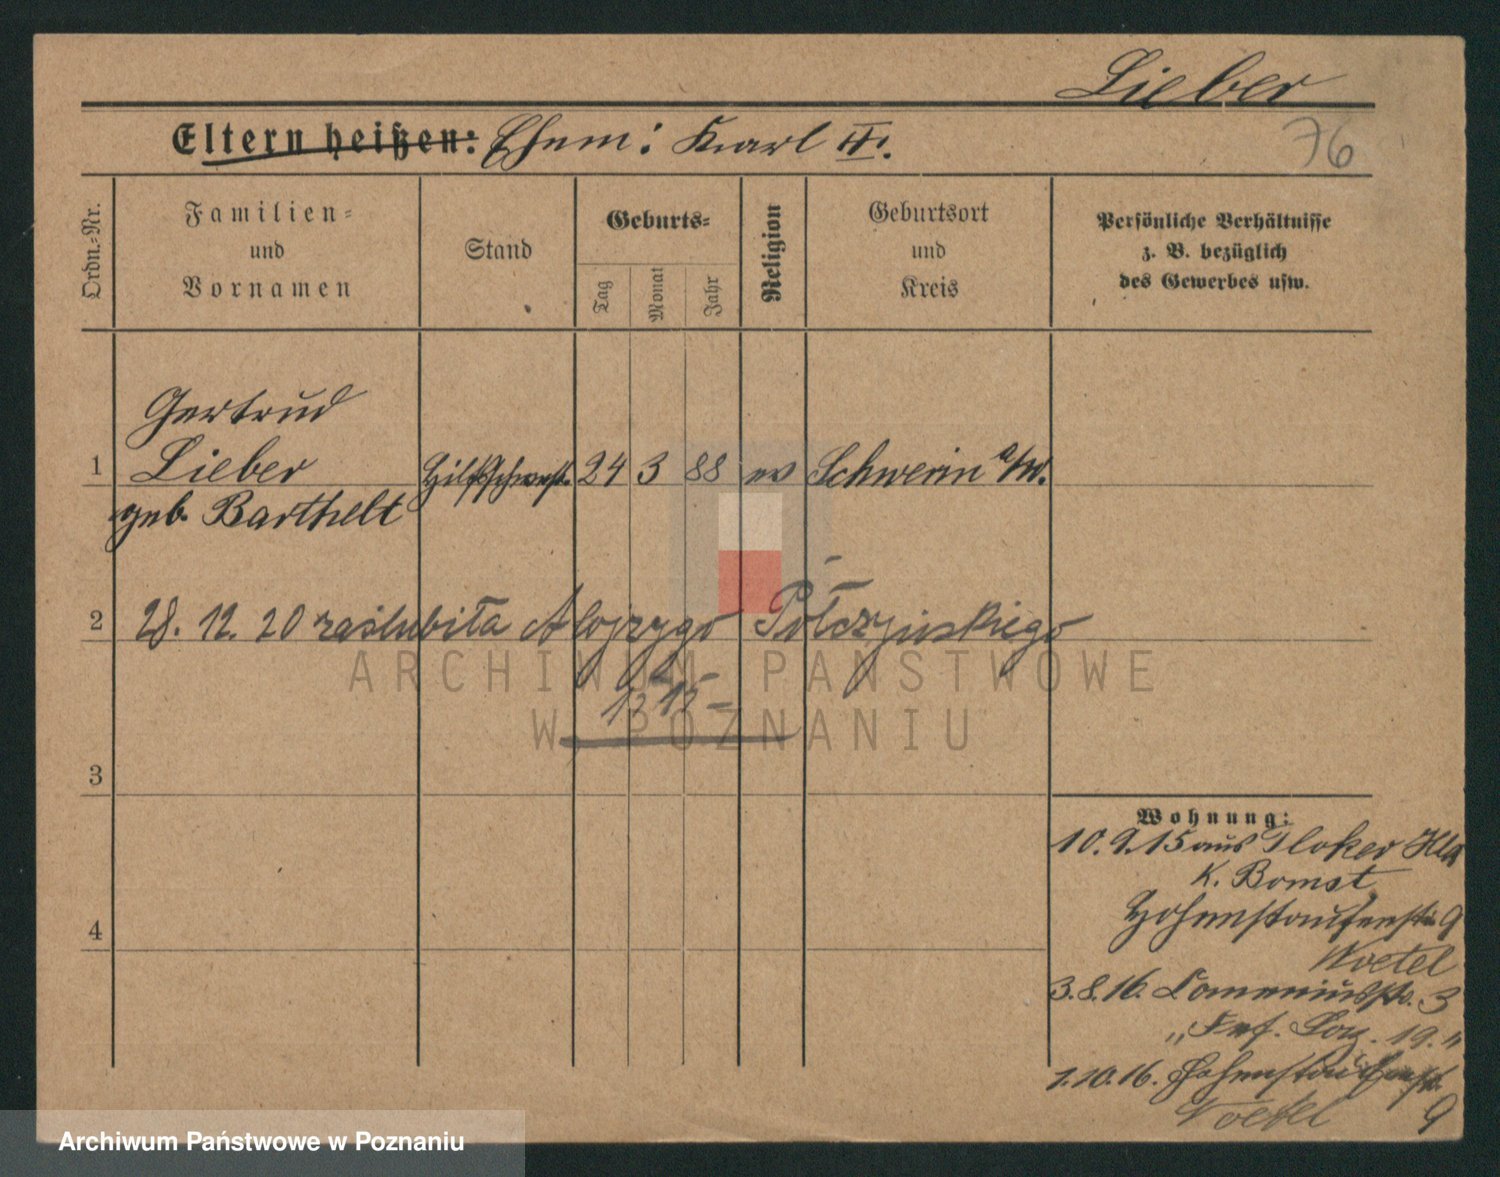 Lieber
Eltern heißen: Ehem: Karl III.
76
Ordn.-Nr.
Familien-
und
Vornamen
Stand
Geburts-
Tag
Monat
Jahr
Religion
Geburtsort
und
Kreis
Persönliche Verhältnisse
z. B. bezüglich
des Gewerbes usw.
Gertrud
1 Lieber Hilfsschwest. 24 3 88 ev Schwerin a/W.
geb. Barthelt
2 28. 12. 20 zaślubiła Alojzygo Połczyńskiego
1515
3
4
Wohnung:
10.9.15 aus
K. Bomst
Hohenstaufenstr 9
Woetel
3.8.16. Comeniusstr. 3
" Laz. 19."
1.10.16. Hohenstaufenst.
9
Woetel
ARCHIWUM PAŃSTWOWE
W POZNANIU
Archiwum Państwowe w Poznaniu